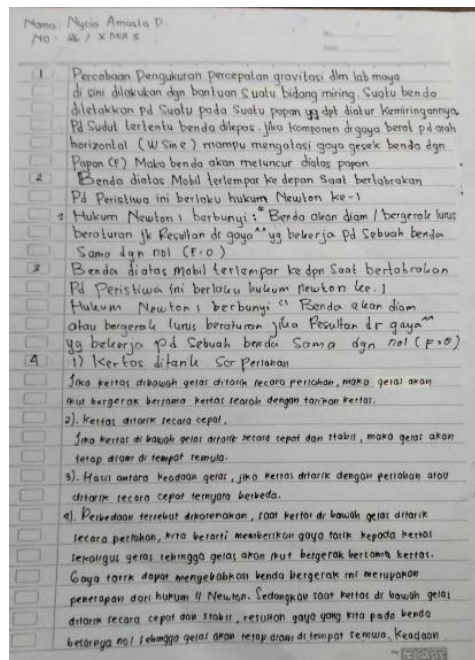 Nama: Nycia Amarta D.
No : 26 / X MIA 3
No
Date
1 Percobaan Pengukuran percepatan gravitasi dlm lab maya
di sini dilakukan dgn bantuan Suatu bidang miring. Suatu benda
diletakkan pd Suatu pada Suatu papan yg dpt diatur kemiringannya
Pd Sudut tertentu benda dilepas. jika komponen dr gaya berat pd arah
horizontal (W Sin e) mampu mengatasi gaya gesek benda dgn
Papan (F) Maka benda akan meluncur diatas papan
2 Benda diatas Mobil terlempar ke depan Saat bertabrakan
Pd Peristiwa ini berlaku hukum Newton ke-1
Hukum Newton 1 berbunyi : "Benda akan diam / bergerak lurus
beraturan jk Resultan dr gaya^^ yg bekerja pd sebuah benda
Sama dgn nol (F=0)
3 Benda diatas mobil terlempar ke dpn Saat bertabrakan
Pd Peristiwa ini berlaku hukum newton ke.1
Hukum Newton 1 berbunyi " Benda akan diam
atau bergerak lurus beraturan jika Resultan dr gaya^^
yg bekerja pd Sebuah benda Sama dgn nol (F=0)
4 1) Kertas ditarik Scr Perlahan
Jika kertas dibawah gelas ditarik secara perlahan, maka gelas akan
ikut bergerak bersama kertas searah dengan tarikan kertas.
2). Kertas ditarik secara cepat,
Jika kertas di bawah gelas ditarik secara cepat dan stabil, maka gelas akan
tetap diam di tempat semula.
3). Hasil antara keadaan gelas, jika kertas ditarik dengan perlahan atau
ditarik secara cepat ternyata berbeda.
4). Perbedaan tersebut dikarenakan, saat kertas di bawah gelas ditarik
secara perlahan, kita berarti memberikan gaya tarik kepada kertas
sekaligus gelas sehingga gelas akan ikut bergerak bersama kertas.
Gaya tarik dapat menyebabkan benda bergerak ini merupakan
penerapan dari hukum II Newton. Sedangkan saat kertas di bawah gelas
ditarik secara cepat dan stabil, resultan gaya yang kita pada benda
besarnya nol sehingga gelas akan tetap diam di tempat semula, Keadaan